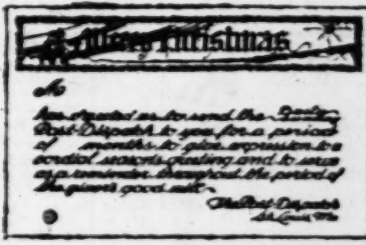 A Merry Christmas
M
has directed us to send the Daily
Post-Dispatch to you for a period
of months to give expression to a
cordial season's greeting and to serve
as a reminder throughout the period of
the giver's good will.
The Post-Dispatch
St. Louis Mo